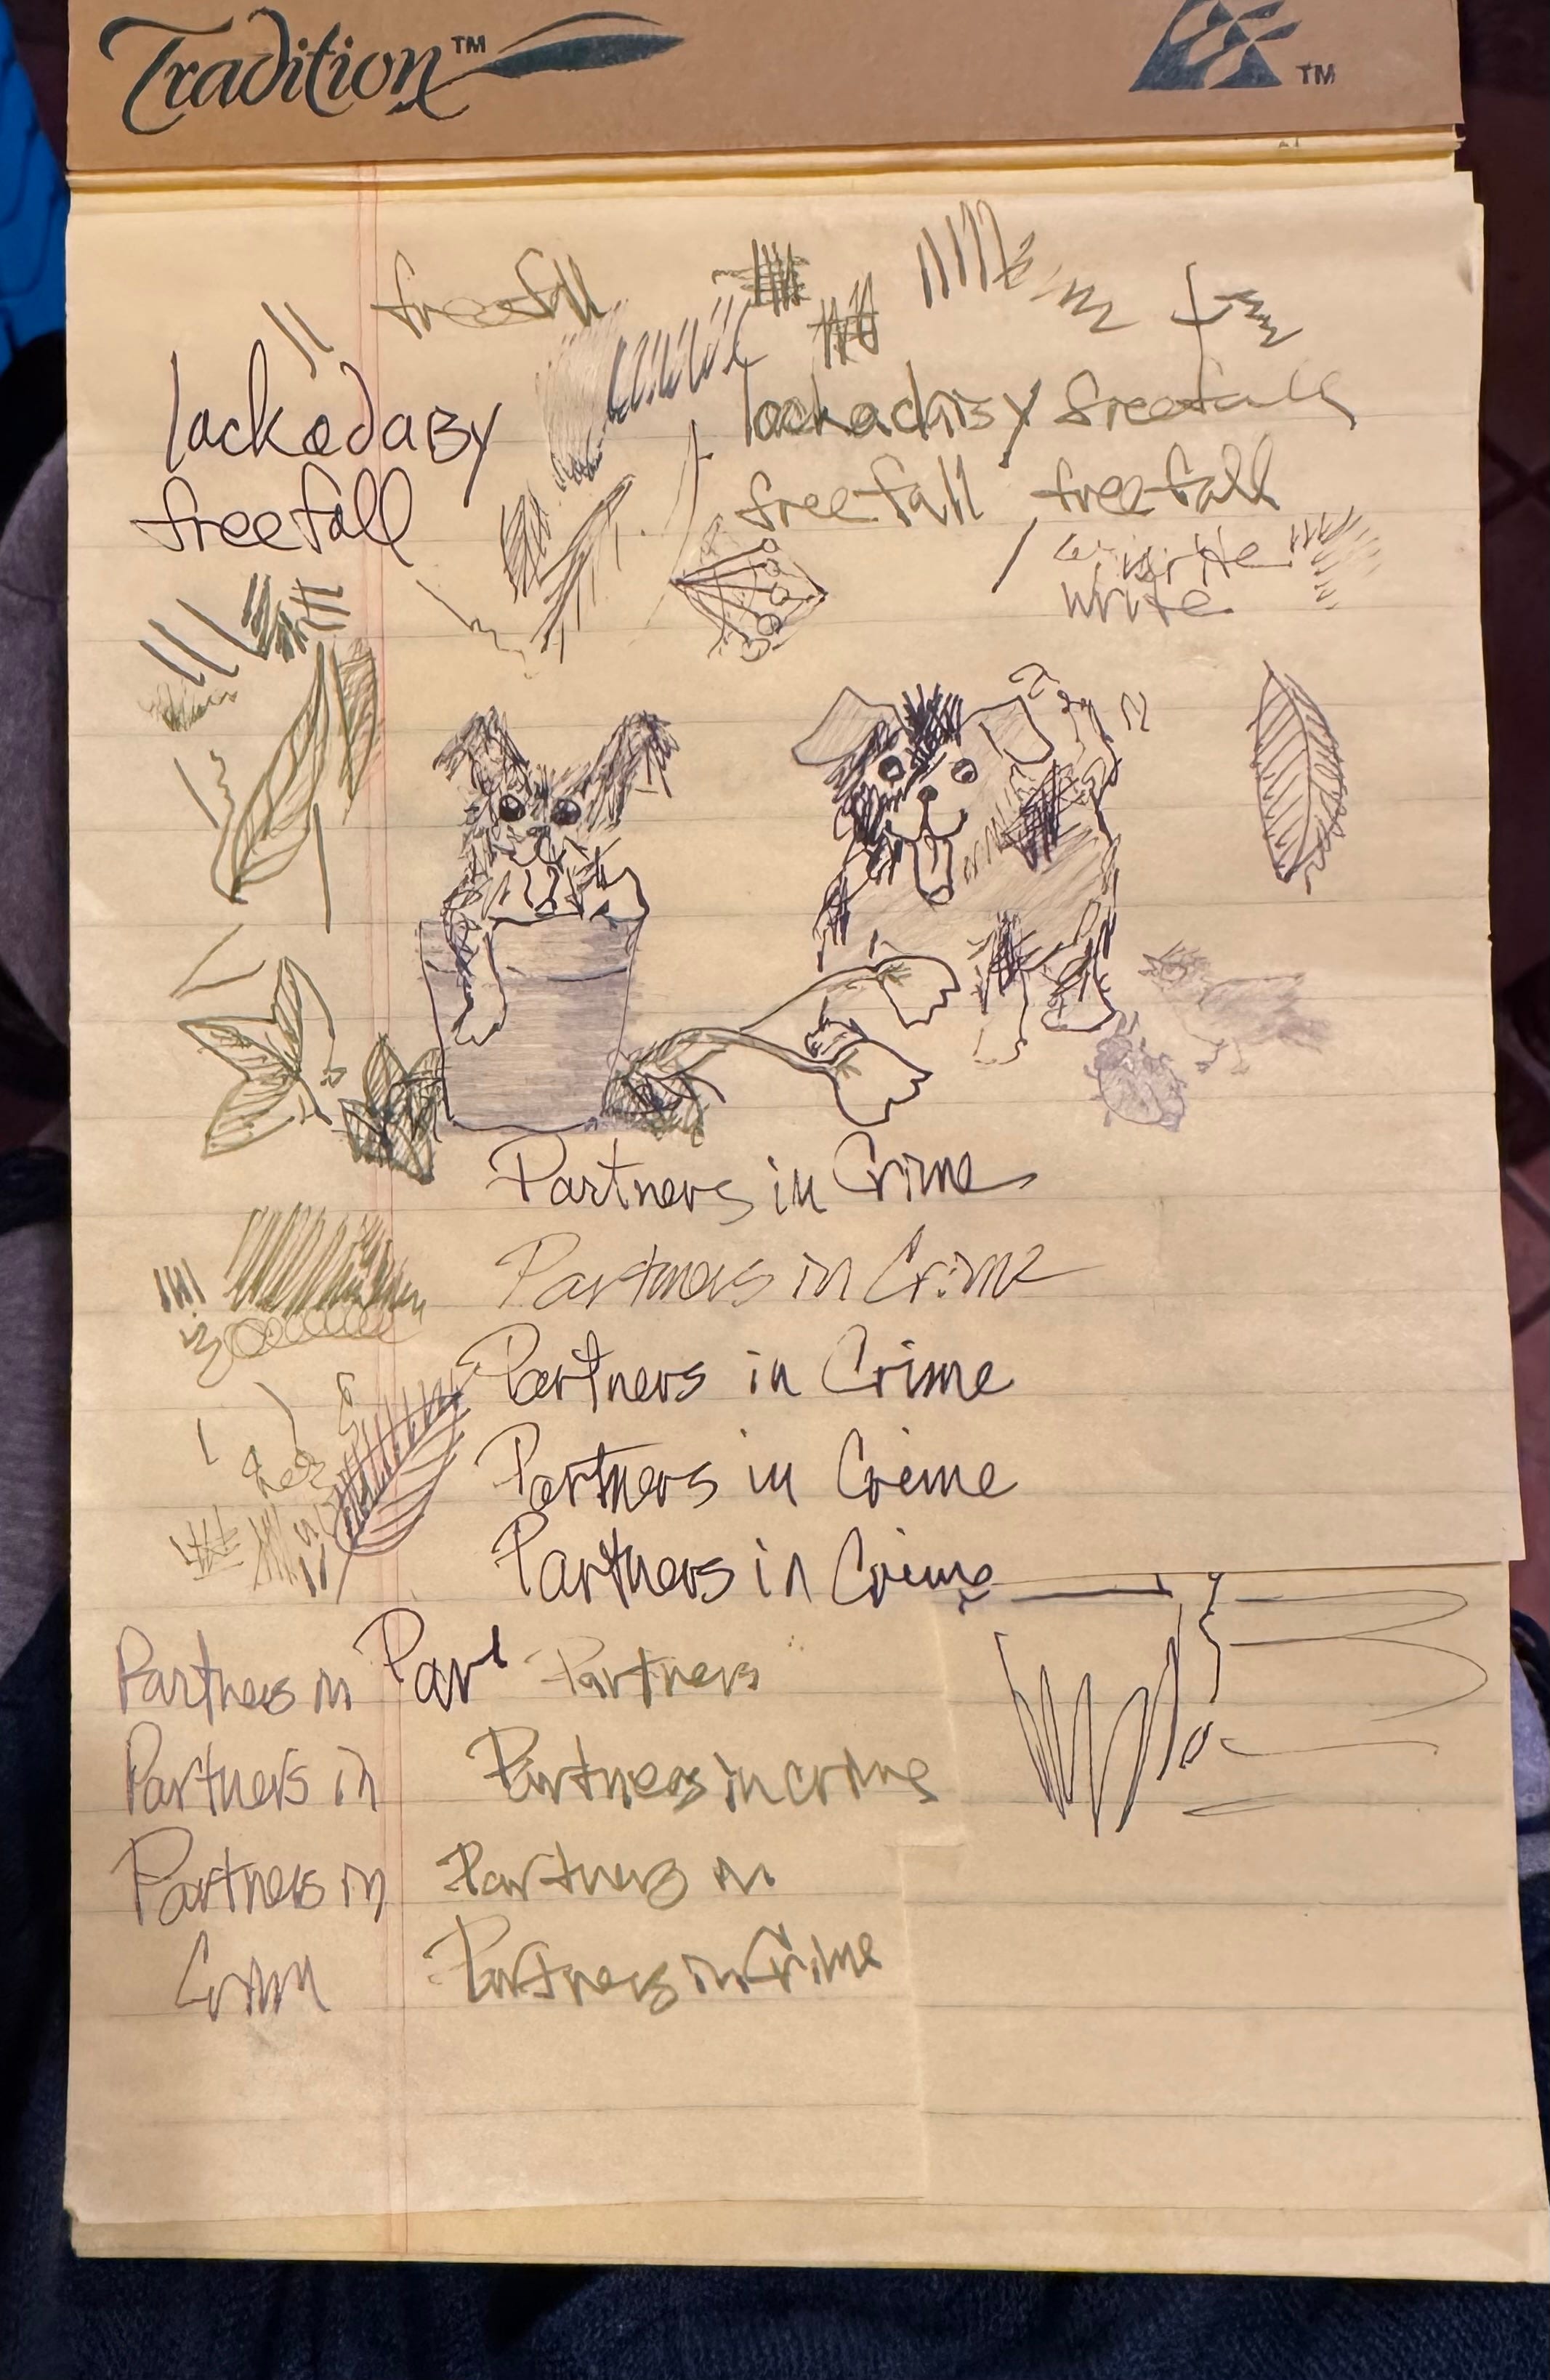 Tradition™
TM
freefall
lackadaisy freefall
lackadaisy freefall
freefall freefall
write
write
Partners in Crime
Partners in Crime
Partners in Crime
Partners in Crime
Partners in Crime
Partners in Part Partners
Partners in Partners in crime
Partners in Partners in
Partners in Crime